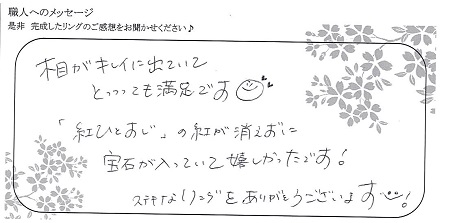 職人へのメッセージ
是非 完成したリングのご感想をお聞かせください♪
木目がキレイに出ていて
とっっっても満足です
「紅ひとすじ」の紅が消えずに
宝石が入っていて嬉しかったです！
ステキなリングをありがとうございます！